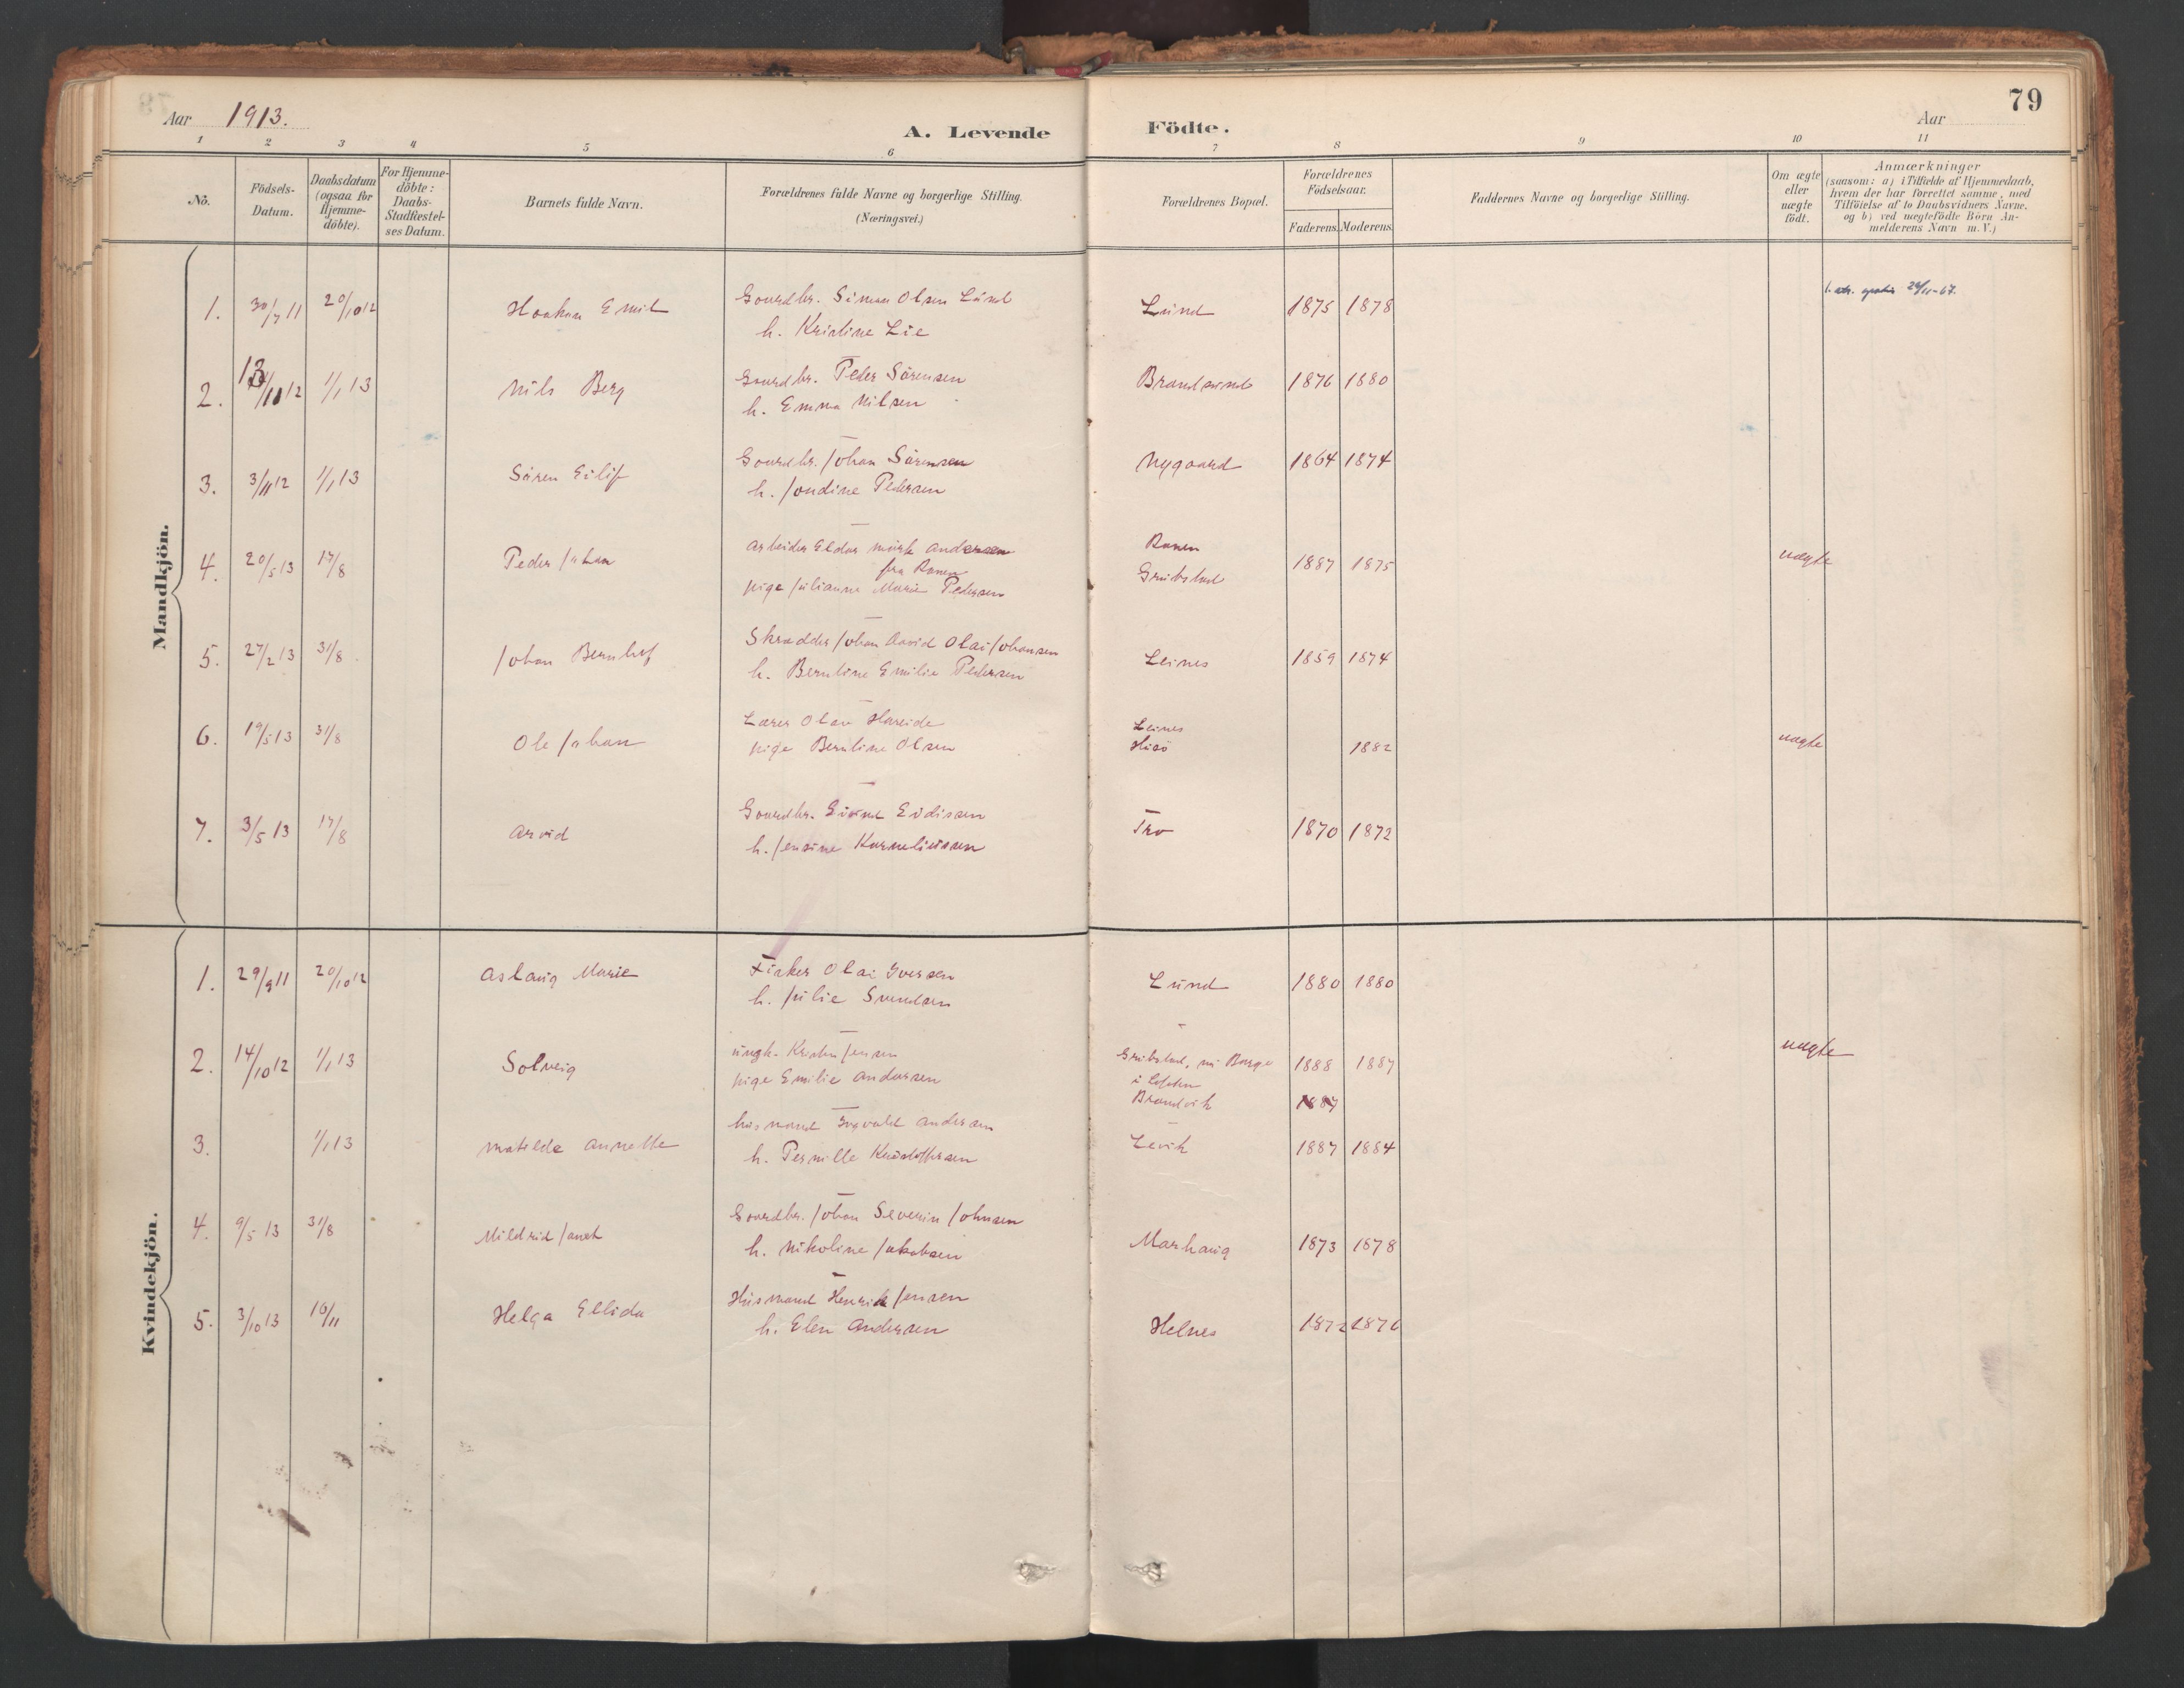 79
Aar 1913.
A. Levende Födte.
Aar
1 2 3 4 5 6 7 8 9 10 11
No.
Födsels-Datum.
Daabsdatum (ogsaa for Hjemme-döbte).
For Hjemme-döbte: Daabs-Stadfæstel-ses Datum.
Barnets fulde Navn.
Forældrenes fulde Navne og borgerlige Stilling. (Næringsvei.)
Forældrenes Bopæl.
Forældrenes Födselsaar.
Faderens. Moderens.
Faddernes Navne og borgerlige Stilling.
Om ægte eller uægte födt.
Anmærkninger
(saasom: a) i Tilfælde af Hjemmedaab, hvem der har forrettet samme, med Tilföielse af to Daabsvidners Navne, og b) ved uægtefödte Börn An-melderens Navn m. V.)
Mandkjön.
1. 30/7 11 20/10 12 Haakon Emil Gaardbr. Simon Olsen Lund Lund 1875 1878
h. Kristine Lie
2. 13/10 12 1/1 13 Nils Berg Gaardbr. Peder Sörensen Brandsund 1876 1880
h. Emma Nilsen
3. 3/11 12 1/1 13 Sören Eilif Gaardbr. Johan Sörensen Nygaard 1864 1874
h. Jondine Pedersen
4. 20/5 13 17/8 Peder Johan Arbeider Eldor Mörk Andersen Ranen 1887 1875 uægte
fra Ranen
pige Julianne Marie Pedersen Grubstad
5. 27/2 13 31/8 Johan Bernhof Skrædder Johan Arvid Olai Johansen Leines 1859 1874
h. Berntine Emilie Pedersen
6. 19/5 13 31/8 Ole Johan Lærer Olav Hareide Leines uægte
pige Berntine Olsen Husö 1882
7. 3/5 13 17/8 Arvid Gaardbr. Eivind Evdissen Tro 1870 1872
h. Jensine Korneliussen
Kvindekjön.
1. 29/9 11 20/10 12 Aslaug Marie Fisker Olai Iversen Lund 1880 1880
h. Julie Svendsen
2. 14/10 12 1/1 13 Solveig ungk. Kristen Jensen Grubstad, nu Borge 1888 1887 uægte
i Lofoten
pige Emilie Andersen Brandvik 1887
3. 1/1 13 Matilde Annette husmand Ingvald Andersen Levik 1887 1884
h. Pernille Kristoffersen
4. 9/5 13 31/8 Mildrid Janet Gaardbr. Johan Severin Johnsen Marhaug 1873 1878
h. Nikoline Jakobsen
5. 3/10 13 16/11 Helga Ellida Husmand Henrik Jensen Helnes 1872 1876
h. Elen Andersen